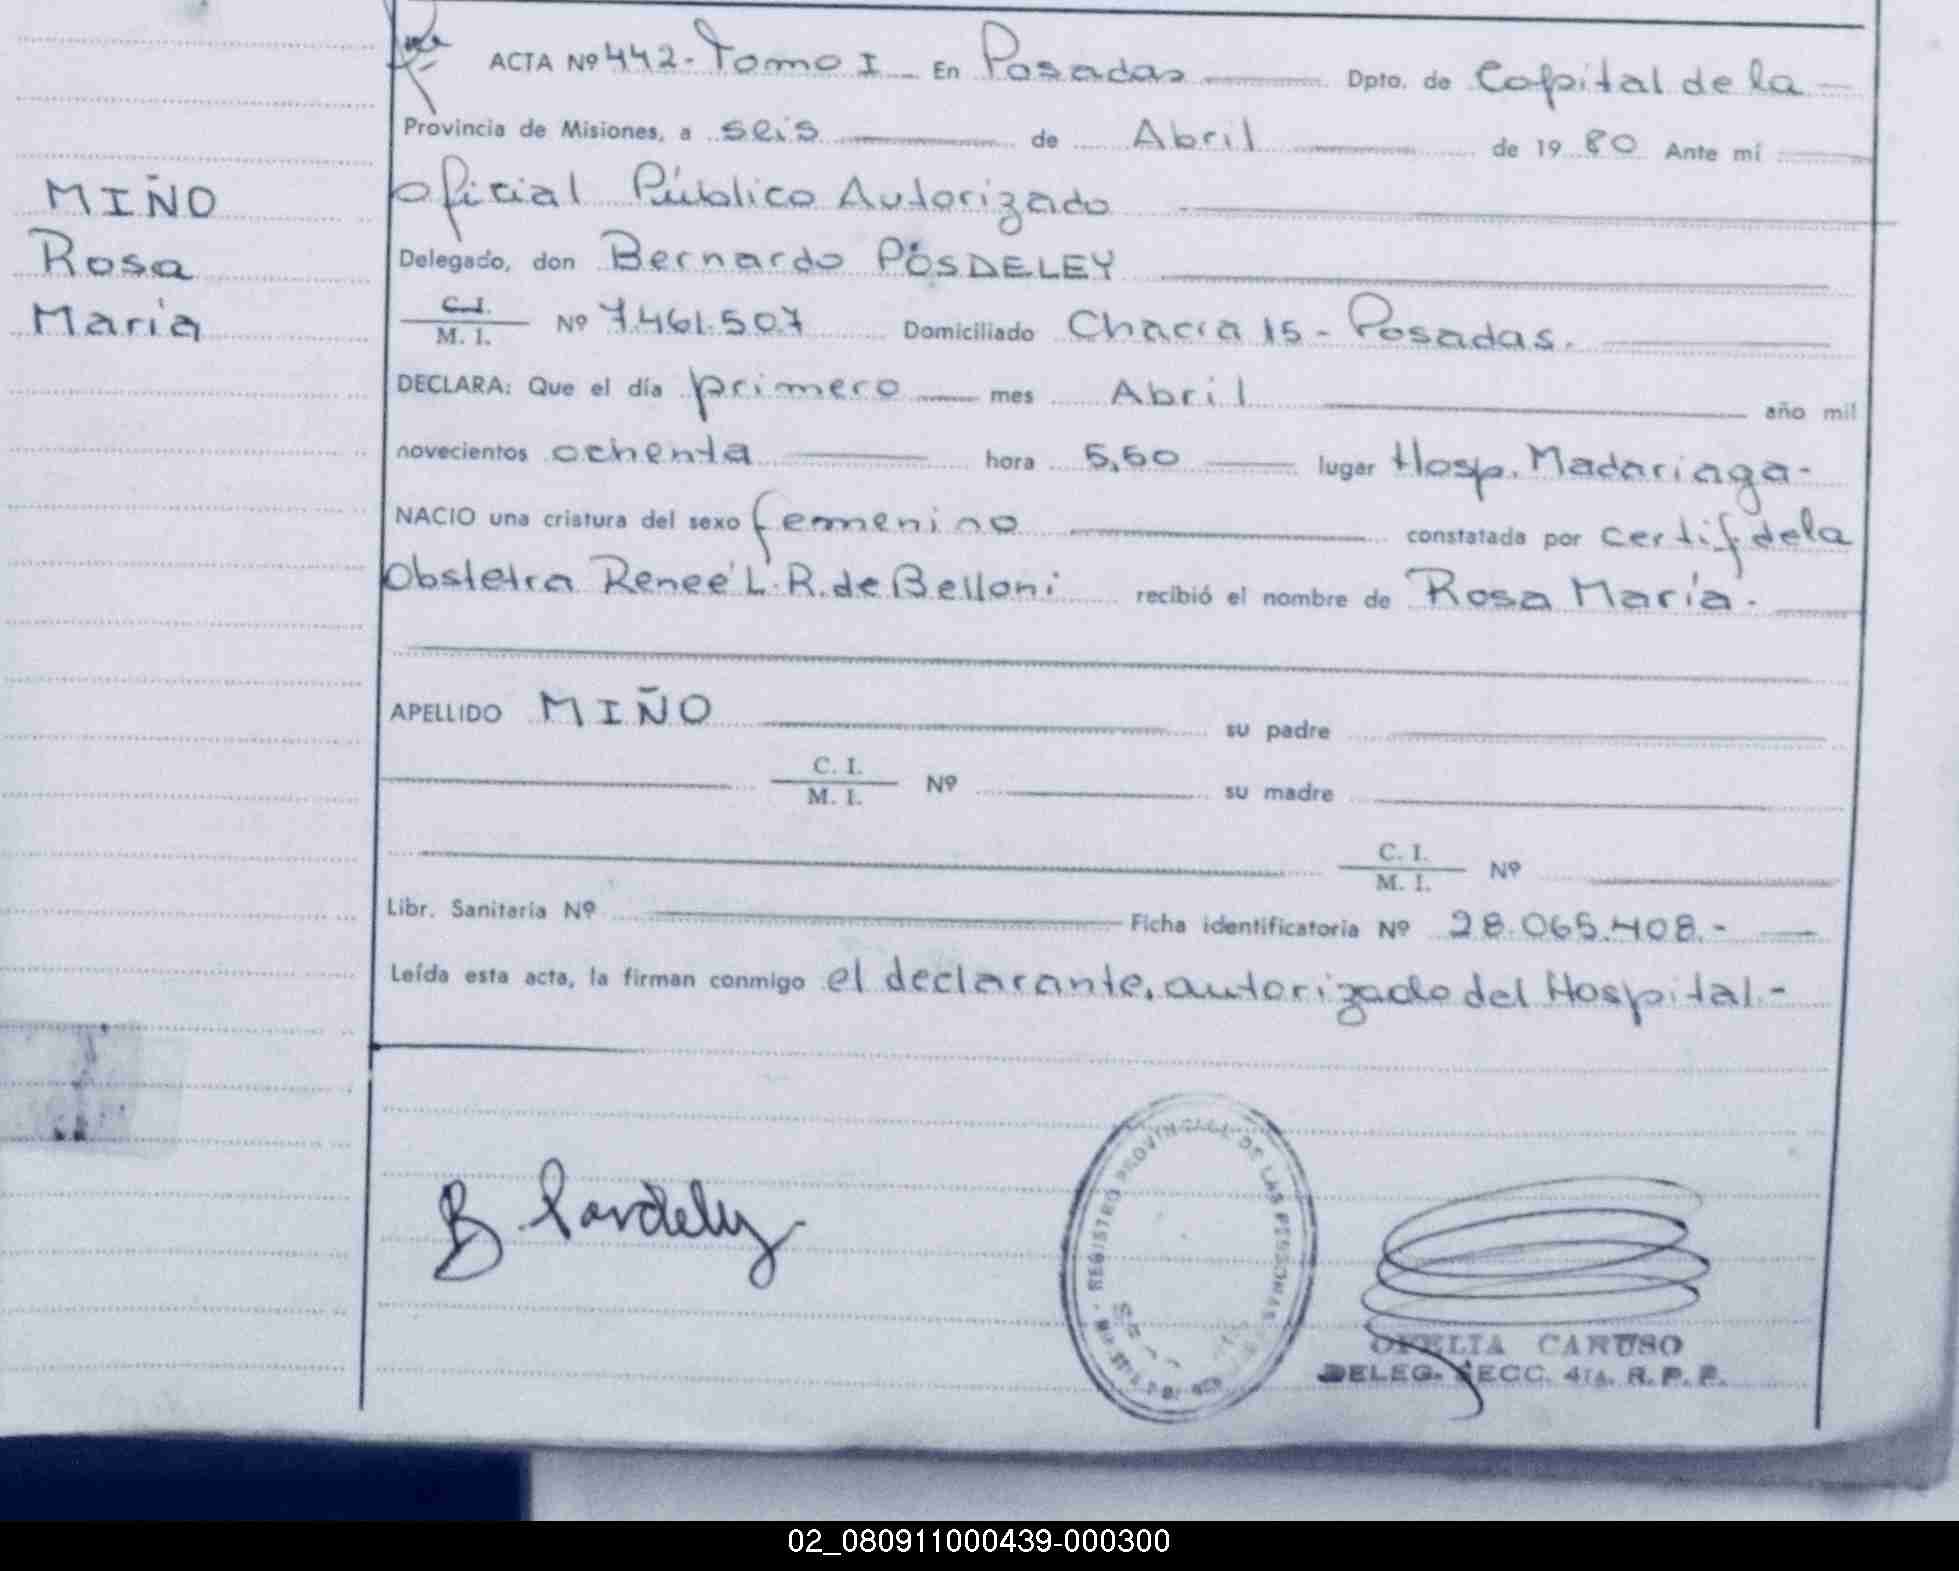 ACTA Nº 442- Tomo I En Posadas Dpto. de Capital de la
Provincia de Misiones, a seis de Abril de 19 80 Ante mí
Oficial Público Autorizado
Delegado, don Bernardo POSDELEY
C.I.
M. I. Nº 7.461.507 Domiciliado Chacra 15 - Posadas.
DECLARA: Que el día primero mes Abril año mil
novecientos ochenta hora 5,50 lugar Hosp. Madariaga-
NACIO una criatura del sexo femenino constatada por certif de la
Obstetra Reneé L. R. de Belloni recibió el nombre de Rosa María.
APELLIDO MIÑO su padre
C. I.
M. I. Nº su madre
C. I.
M. I. Nº
Libr. Sanitaria Nº Ficha identificatoria Nº 28.065.408.-
Leída esta acta, la firman conmigo el declarante, autorizado del Hospital.-
MIÑO
Rosa
María
REGISTRO PROVINCIAL DE LAS PERSONAS
OFELIA CARUSO
DELEG. SECC. 4TA. R. P. P.
02_080911000439-000300